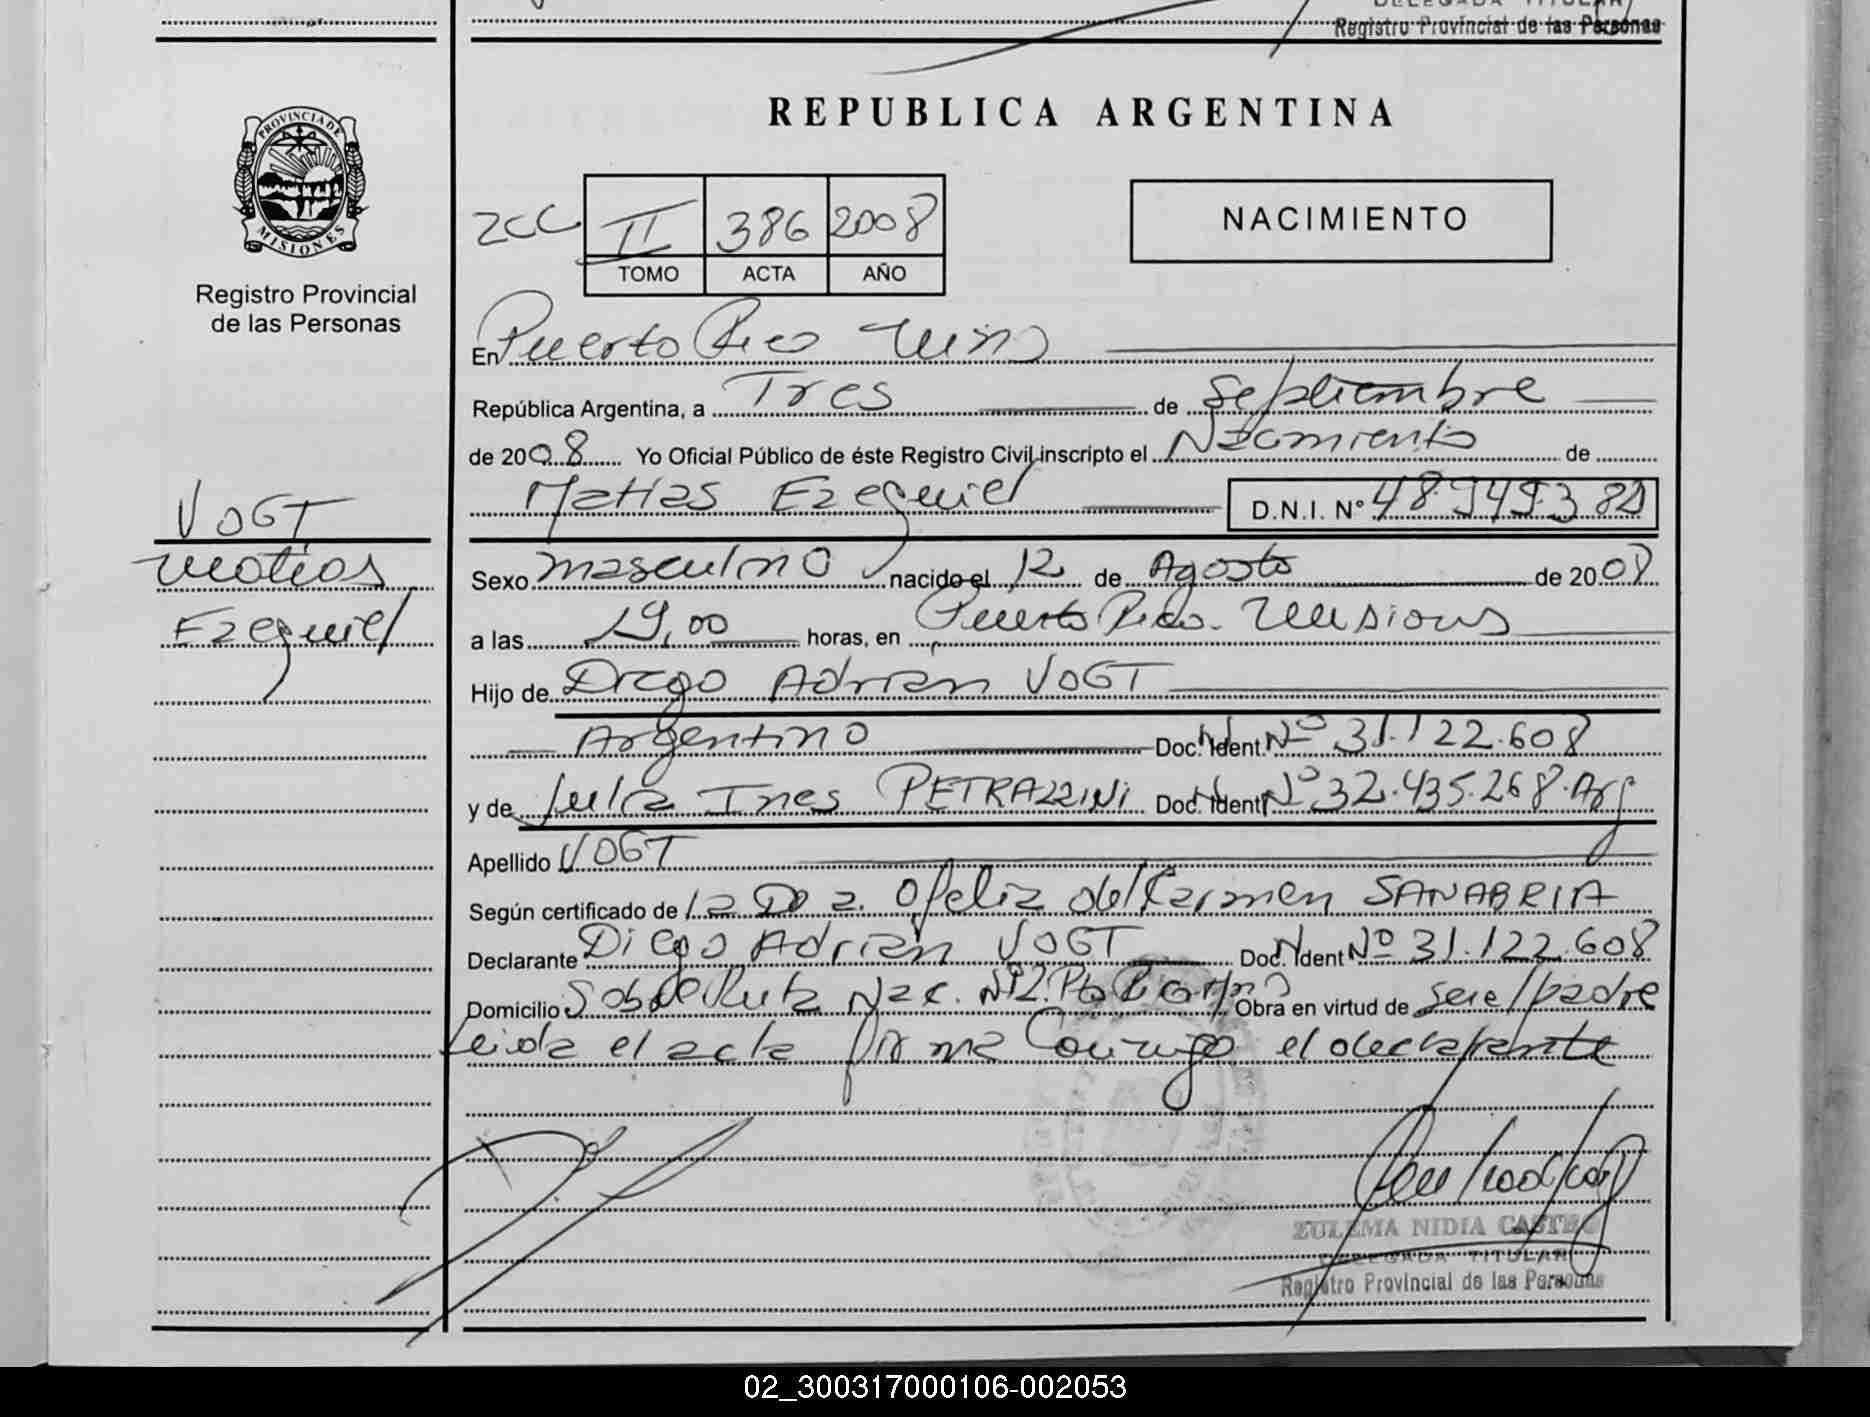 DELEGADA TITULAR
Registro Provincial de las Personas
PROVINCIA DE
MISIONES
Registro Provincial
de las Personas
VOGT
Matias
Ezequiel
REPUBLICA ARGENTINA
II 386 2008
TOMO ACTA AÑO
NACIMIENTO
En Puerto Rico Mins
República Argentina, a Tres de Septiembre
de 2008 Yo Oficial Público de éste Registro Civil inscripto el Nacimiento de
Matias Ezequiel D.N.I. Nº 48949380
Sexo masculino nacido el 12 de Agosto de 2008
a las 19,00 horas, en Puerto Rico. Misiones
Hijo de Diego Adrian VOGT
Argentino Doc. Ident. Nº 31.122.608
y de Julia Ines PETRAZZINI Doc. Ident Nº 32.435.268. Arg
Apellido VOGT
Según certificado de la Dra. Ofelia del Carmen SANABRIA
Declarante Diego Adrian VOGT Doc. Ident Nº 31.122.608
Domicilio Sobre Ruta Nac. Nº12. Pto Rico Mns Obra en virtud de ser el padre
Leida el acta firma Conmigo el declarante
ZULEMA NIDIA
DELEGADA TITULAR
Registro Provincial de las Personas
02_300317000106-002053